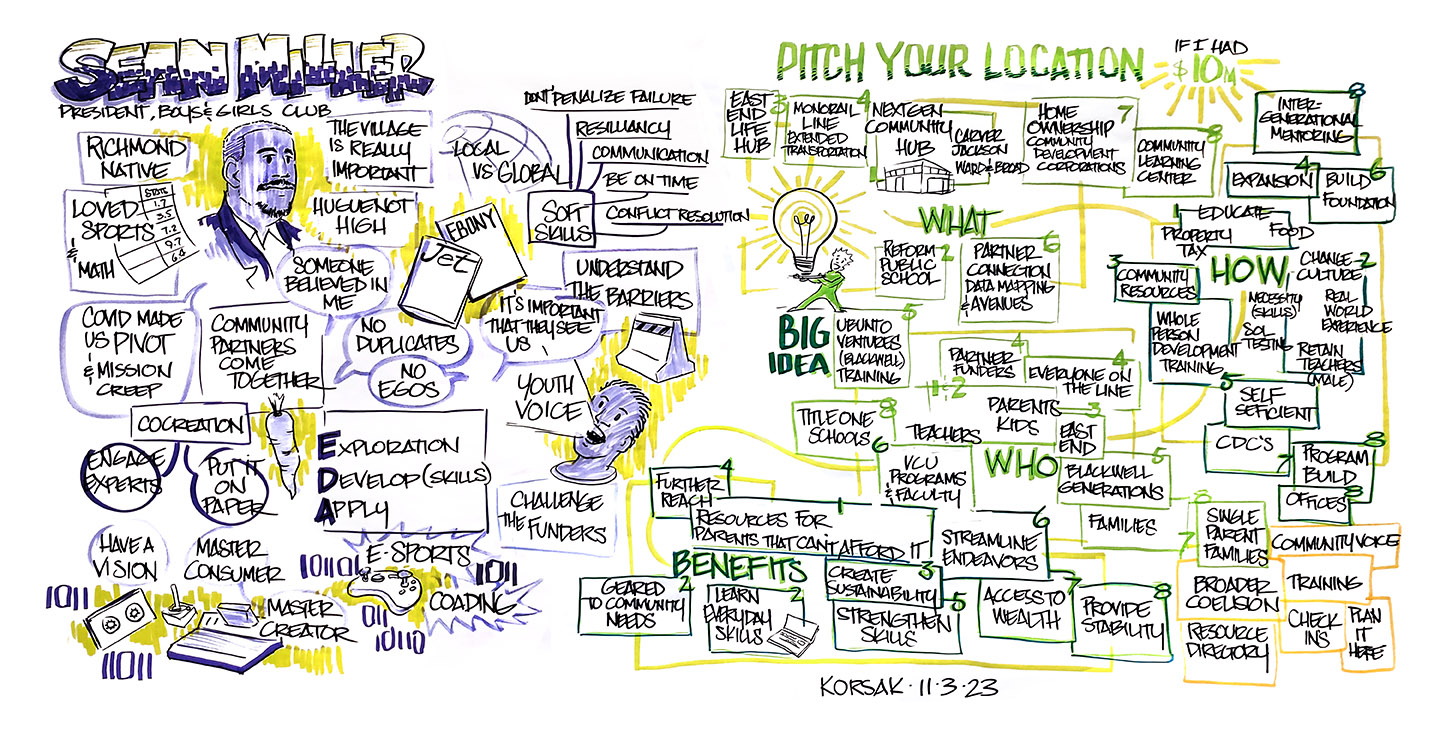 SEAN MILLER
PRESIDENT, BOYS & GIRLS CLUB
RICHMOND
NATIVE
THE VILLAGE
IS REALLY
IMPORTANT
LOVED
SPORTS
&
MATH
STATS
1.7
3.5
7.2
9.7
6.4
HUGUENOT
HIGH
SOMEONE
BELIEVED IN
ME
LOCAL
VS GLOBAL
DON'T PENALIZE FAILURE
RESILIANCY
COMMUNICATION
BE ON TIME
CONFLICT RESOLUTION
SOFT
SKILLS
EBONY
JET
UNDERSTAND
THE BARRIERS
COVID MADE
US PIVOT
& MISSION
CREEP
COMMUNITY
PARTNERS
COME
TOGETHER
NO
DUPLICATES
NO
EGOS
IT'S IMPORTANT
THAT THEY SEE
US
YOUTH
VOICE
COCREATION
ENGAGE
EXPERTS
PUT IT
ON
PAPER
EXPLORATION
DEVELOP (SKILLS)
APPLY
CHALLENGE
THE FUNDERS
HAVE A
VISION
MASTER
CONSUMER
MASTER
CREATOR
E-SPORTS
CODING
1011
11011
11011
1011
011
10110
PITCH YOUR LOCATION
IF I HAD
$10M
EAST
END
LIFE
HUB
3
MONORAIL
LINE
EXTENDED
TRANSPORTATION
4
NEXT GEN
COMMUNITY
HUB
CARVER
JACKSON
WARD & BROAD
1
HOME
OWNERSHIP
COMMUNITY
DEVELOPMENT
CORPORATIONS
7
COMMUNITY
LEARNING
CENTER
8
INTER-
GENERATIONAL
MENTORING
8
EXPANSION
4
BUILD
FOUNDATION
6
WHAT
REFORM
PUBLIC
SCHOOL
2
PARTNER
CONNECTION
DATA MAPPING
& AVENUES
6
BIG
IDEA
UBUNTO
VENTURES
(BLACKWELL)
TRAINING
5
1
EDUCATE
PROPERTY
TAX
FOOD
HOW
COMMUNITY
RESOURCES
3
CHANGE
CULTURE
2
NECESSITY
(SKILLS)
SOL
TESTING
REAL
WORLD
EXPERIENCE
RETAIN
TEACHERS
(MALE)
WHOLE
PERSON
DEVELOPMENT
TRAINING
SELF
SEFICIENT
5
CDC'S
7
PROGRAM
BUILD
8
OFFICES
8
PARTNER
FUNDERS
4
EVERYONE ON
THE LINE
4
1 & 2
PARENTS
KIDS
TEACHERS
TITLE ONE
SCHOOLS
8
EAST
END
3
WHO
VCU
PROGRAMS
& FACULTY
6
BLACKWELL
GENERATIONS
5
FAMILIES
7
SINGLE
PARENT
FAMILIES
8
FURTHER
REACH
4
RESOURCES FOR
PARENTS THAT CAN'T AFFORD IT
1
STREAMLINE
ENDEAVORS
6
BENEFITS
GEARED
TO COMMUNITY
NEEDS
2
LEARN
EVERYDAY
SKILLS
2
CREATE
SUSTAINABILITY
3
STRENGTHEN
SKILLS
5
ACCESS TO
WEALTH
7
PROVIDE
STABILITY
8
COMMUNITY VOICE
BROADER
COELISION
TRAINING
RESOURCE
DIRECTORY
CHECK
INS
PLAN
IT
HERE
KORSAK · 11·3·23